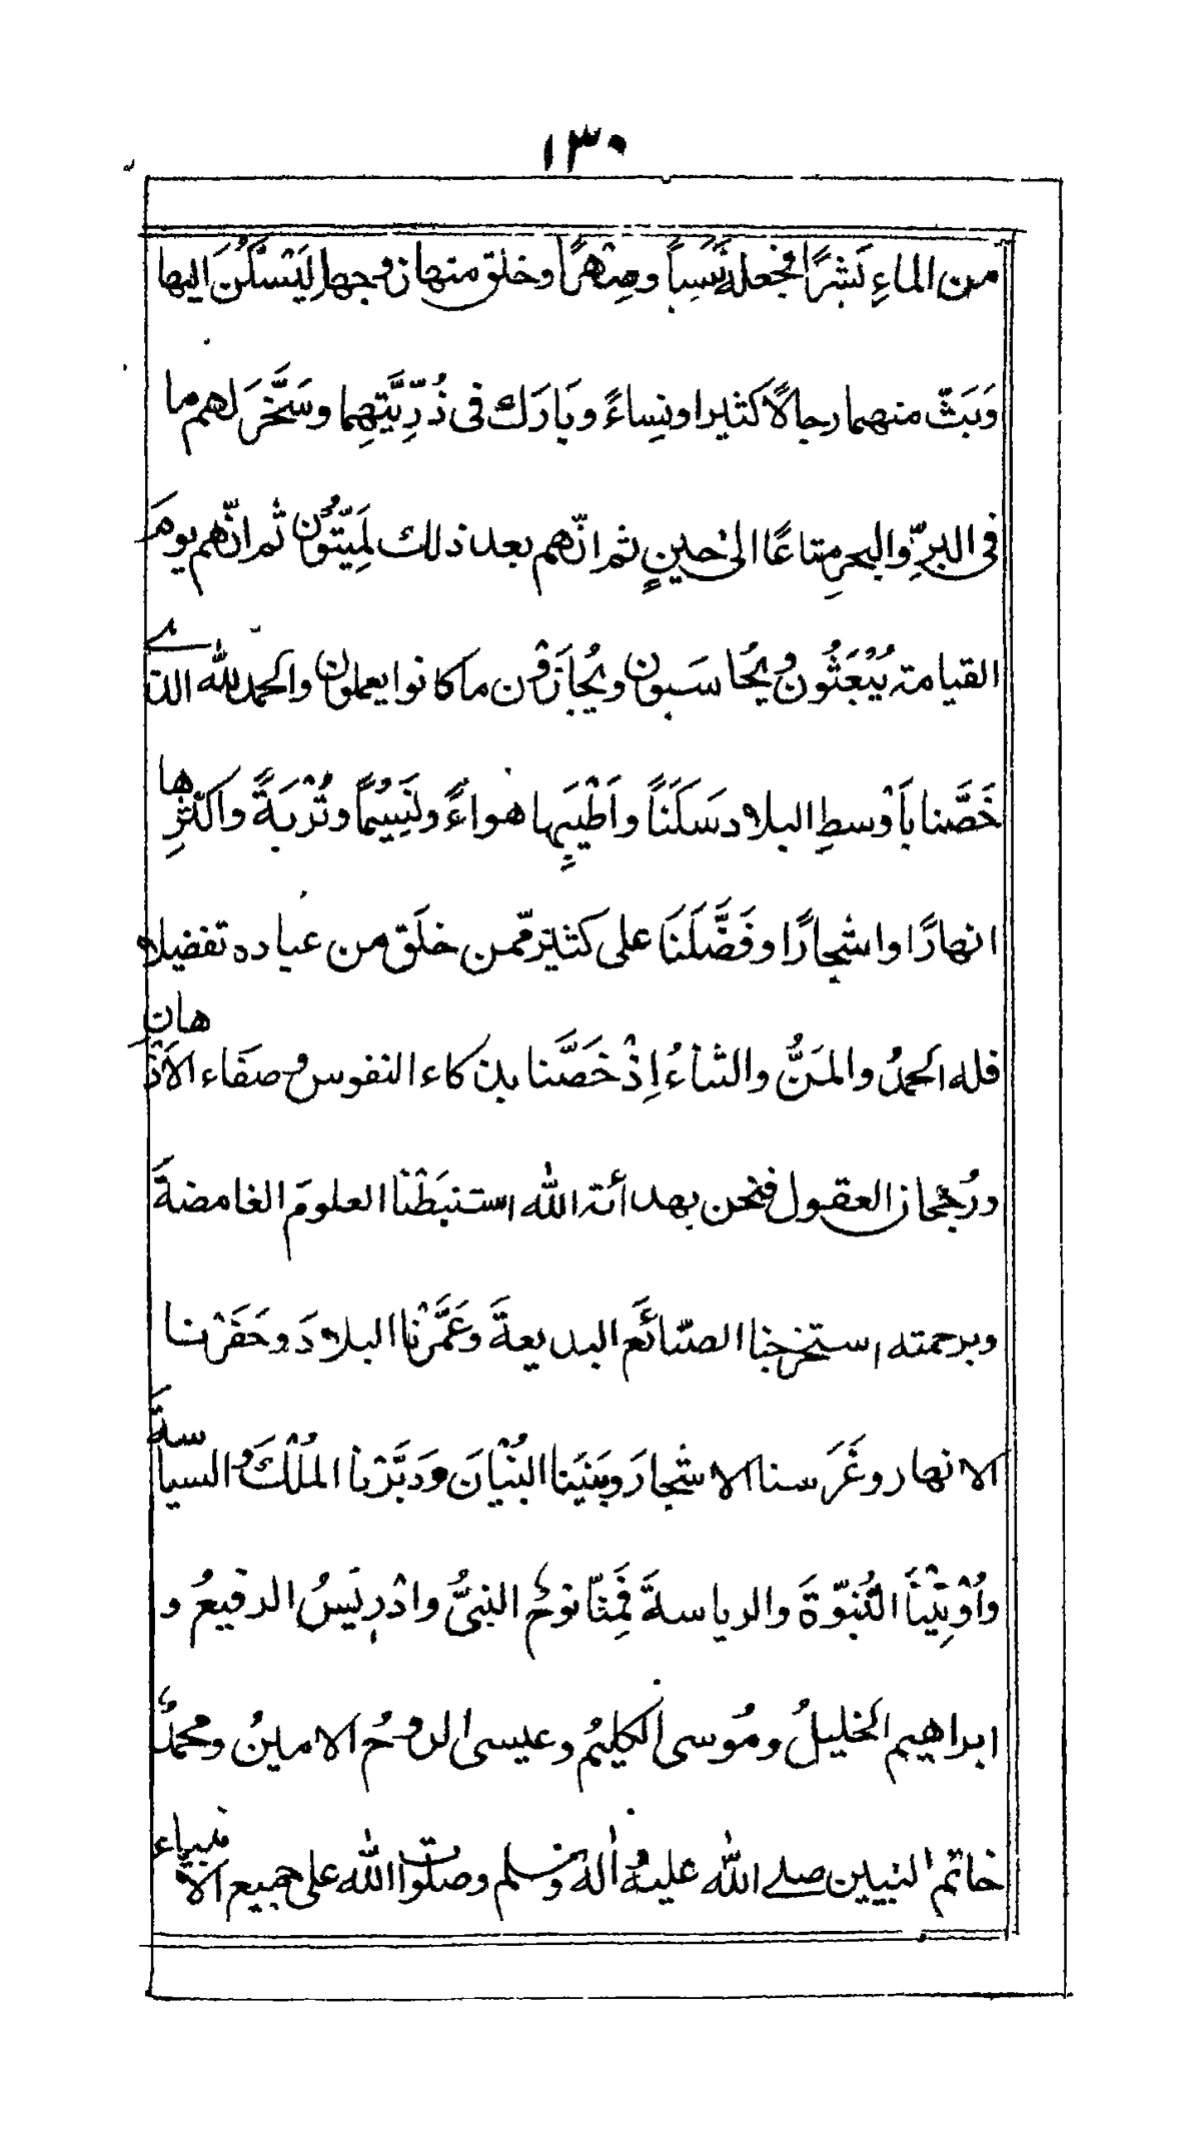 ١٣٠
من الماءِ بَشرًا فجعلهُ نَسَباً وصِهْرًا وخلق منها زوجها لِيَسْكُنَ اليها
وَبَثّ منهما رجالًا كثيرا ونِساءً وبَارَك فى ذُرِّيَّتِهِما وسَخَّرَ لهم ما
فى البرِّ والبحرِ متاعًا الىٰ حينٍ ثم انّهم بعد ذلك لَمِيّتُون ثم انّهم يومَ
القيامة يُبْعَثُون ويُحاسَبون ويُجازَوْن ما كانوا يعملون والحمد لله الذى
خَصَّنا بأَوْسطِ البلاد سَكَنَاً واَطْيَبِها هواءً ونَسِيْماً وتُرْبَةً واكثرِها
انهارًا واشجارًا وفَضَّلَنَا على كثيرٍ ممن خلَق من عباده تفضيلا
فله الحمدُ والمَنُّ والثناءُ اِذْ خَصَّنا بذكاء النفوس وصفَاء الاَذْهان
ورُجحان العقول فنحن بهدائة الله استنبَطْنا العلومَ الغامضةَ
وبرحمته استخرجنا الصنائعَ البديعةَ وعَمَّرْنا البلادَ وحَفَرْنا
الانهار وغَرَسنا الاشجارَ وبَنَيْنا البُنْيَانَ ودَبَّرْنا المُلْكَ والسياسةَ
واُوْتِيْنَا النُبُوّةَ والرياسةَ فَمِنّا نوحُ النبىُّ وادْرِيَسُ الرفيعُ و
ابراهيم الخليلُ ومُوسى الكليمُ وعيسى الروحُ الامينُ ومحمدٌ
خاتم النبيين صلے الله عليه واٰله وسلم وصلوات الله على جميع الانبياء